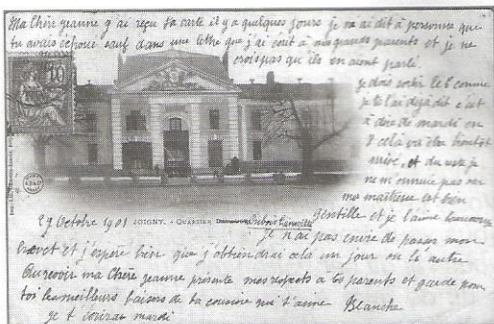 Ma Chère jeanne j'ai reçu ta carte il y a quelques jours je n'ai dit à personne que
tu avais échoué sauf dans une lettre que j'ai écrit à mes grands parents et je ne
crois pas qu'ils en aient parlé.
je dois sortir le 8 comme
je te l'ai déjà dit c'est
à dire de mardi en
8 cela va être bientôt
arrivé, et du reste je
ne m'ennuie pas car
ma maîtresse est bien
gentille et je l'aime beaucoup
29 Octobre 1901 JOIGNY. - QUARTIER
je n'ai pas envie de passer mon
brevet et j'espère bien que j'obtiendrai cela un jour ou l'autre
Au revoir ma Chère jeanne présente mes respects à tes parents et garde pour
toi les meilleurs baisers de ta cousine qui t'aime Blanche
je t'écrirai mardi
10